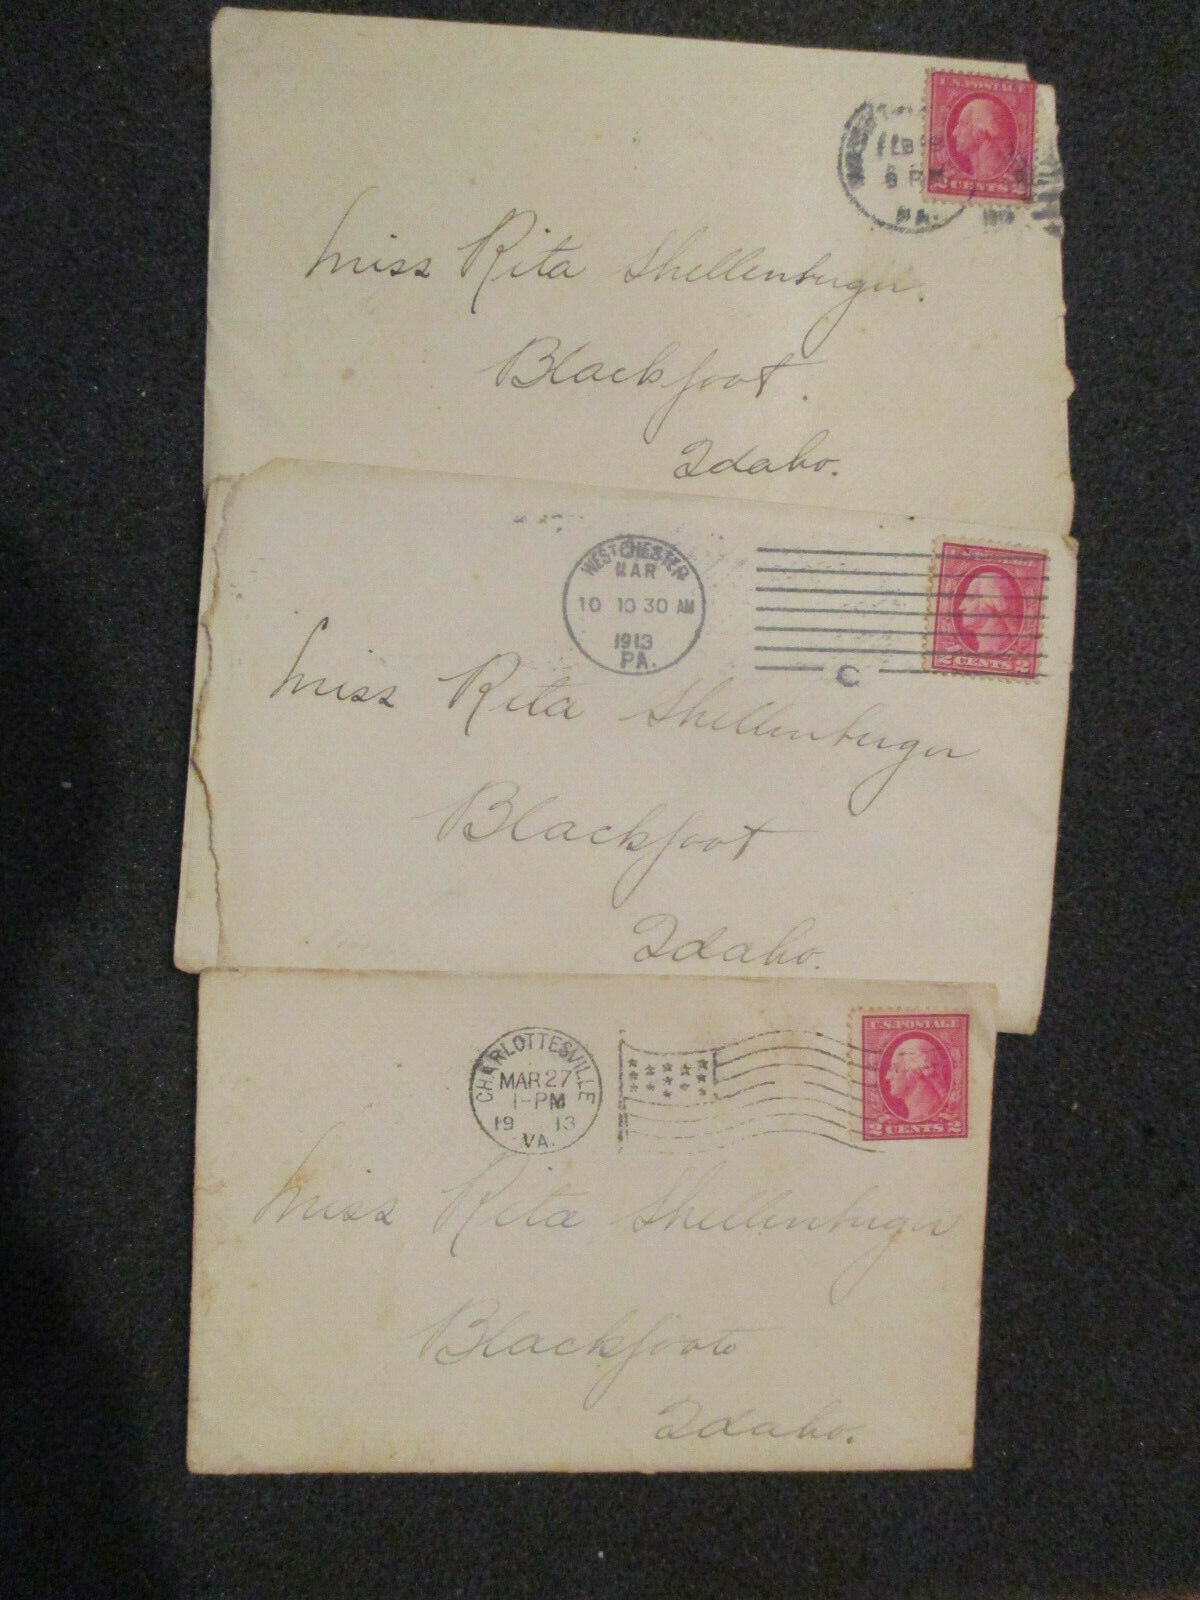 U.S. POSTAGE
FEB
PA.
2 CENTS 2
Miss Rita Shellenberger.
Blackfoot.
Idaho.
WEST CHESTER
MAR
10 10 30 AM
1913
PA.
C
U.S. POSTAGE
2 CENTS 2
Miss Rita Shellenberger
Blackfoot
Idaho.
CHARLOTTESVILLE
MAR 27
1-PM
19 13
VA.
U.S. POSTAGE
2 CENTS 2
Miss Rita Shellenberger
Blackfoot
Idaho.